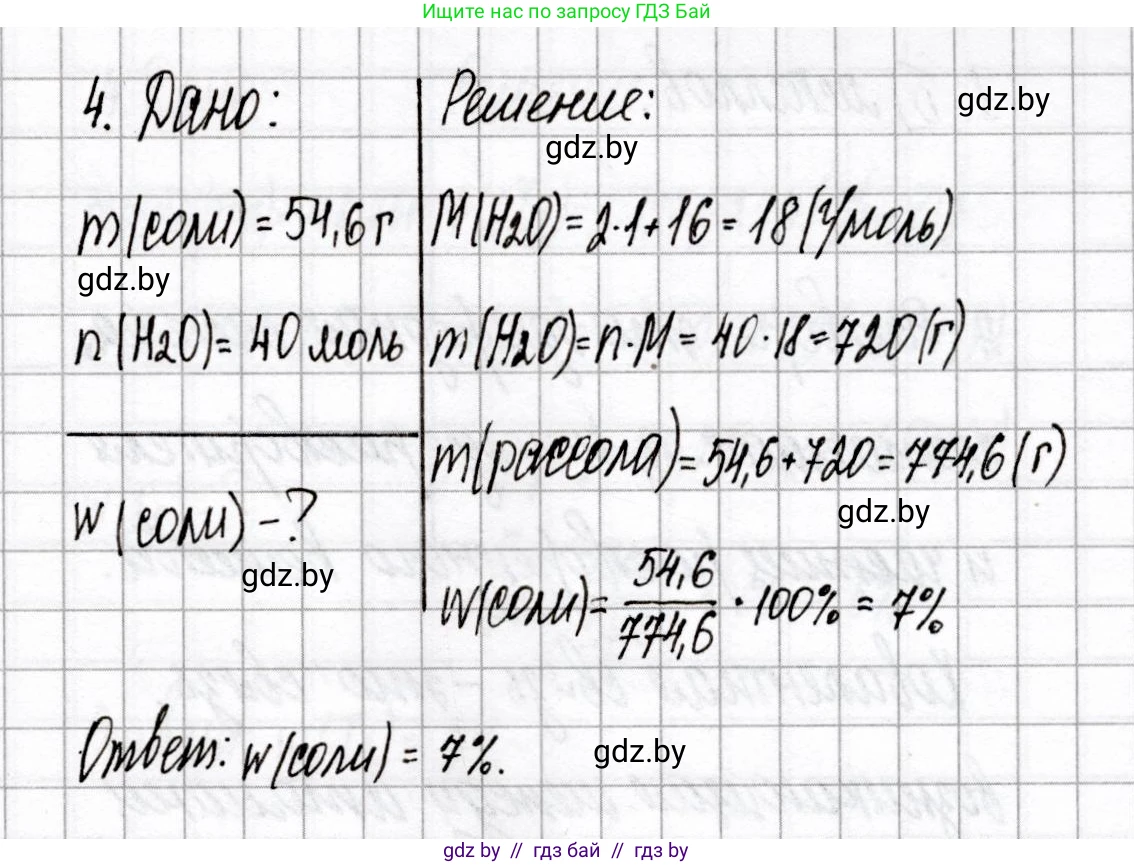 Ищите нас по запросу ГДЗ Бай
4. Дано:
Решение:
gdz.by
gdz.by
m(соли) = 54,6 г
M(H2O) = 2·1+16 = 18 (г/моль)
gdz.by
n(H2O) = 40 моль
m(H2O) = n·M = 40·18 = 720 (г)
m(рассола) = 54,6+720 = 774,6 (г)
gdz.by
w(соли) - ?
gdz.by
w(соли) = 54,6/774,6 · 100% = 7%
Ответ: w(соли) = 7%.
gdz.by
gdz by // гдз бай // гдз by